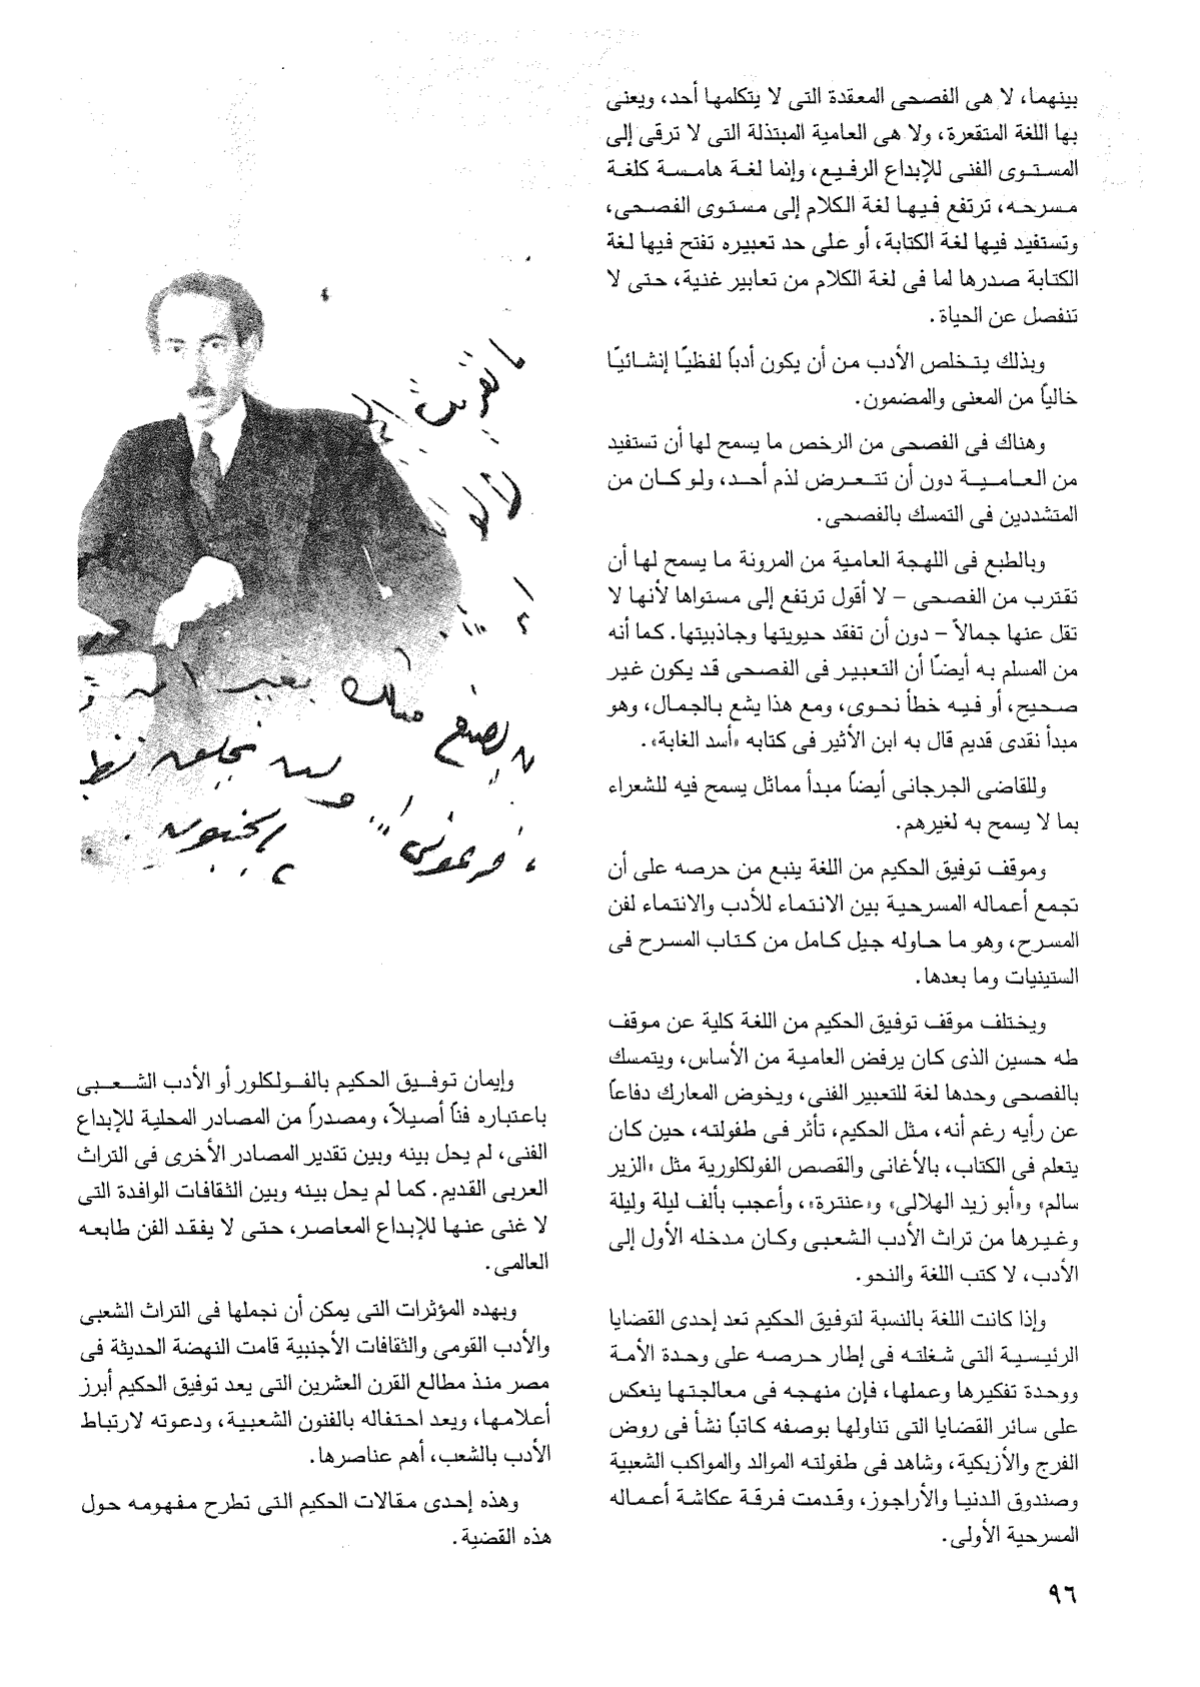 بينهما، لا هى الفصحى المعقدة التى لا يتكلمها أحد، ويعنى
بها اللغة المتقعرة، ولا هى العامية المبتذلة التى لا ترقى إلى
المستوى الفنى للإبداع الرفيع، وإنما لغة هامسة كلغة
مسرحه، ترتفع فيها لغة الكلام إلى مستوى الفصحى،
وتستفيد فيها لغة الكتابة، أو على حد تعبيره تفتح فيها لغة
الكتابة صدرها لما فى لغة الكلام من تعابير غنية، حتى لا
تنفصل عن الحياة.
وبذلك يتخلص الأدب من أن يكون أدباً لفظيًا إنشائيًا
خالياً من المعنى والمضمون.
وهناك فى الفصحى من الرخص ما يسمح لها أن تستفيد
من العامية دون أن تتعرض لذم أحد، ولو كان من
المتشددين فى التمسك بالفصحى.
وبالطبع فى اللهجة العامية من المرونة ما يسمح لها أن
تقترب من الفصحى – لا أقول ترتفع إلى مستواها لأنها لا
تقل عنها جمالاً – دون أن تفقد حيويتها وجاذبيتها. كما أنه
من المسلم به أيضًا أن التعبير فى الفصحى قد يكون غير
صحيح، أو فيه خطأ نحوى، ومع هذا يشع بالجمال، وهو
مبدأ نقدى قديم قال به ابن الأثير فى كتابه «أسد الغابة».
وللقاضى الجرجانى أيضاً مبدأ مماثل يسمح فيه للشعراء
بما لا يسمح به لغيرهم.
وموقف توفيق الحكيم من اللغة ينبع من حرصه على أن
تجمع أعماله المسرحية بين الانتماء للأدب والانتماء لفن
المسرح، وهو ما حاوله جيل كامل من كتاب المسرح فى
الستينيات وما بعدها.
ويختلف موقف توفيق الحكيم من اللغة كلية عن موقف
طه حسين الذى كان يرفض العامية من الأساس، ويتمسك
بالفصحى وحدها لغة للتعبير الفنى، ويخوض المعارك دفاعاً
عن رأيه رغم أنه، مثل الحكيم، تأثر فى طفولته، حين كان
يتعلم فى الكتاب، بالأغانى والقصص الفولكلورية مثل «الزير
سالم» و«أبو زيد الهلالى» و«عنترة»، وأعجب بألف ليلة وليلة
وغيرها من تراث الأدب الشعبى وكان مدخله الأول إلى
الأدب، لا كتب اللغة والنحو.
وإذا كانت اللغة بالنسبة لتوفيق الحكيم تعد إحدى القضايا
الرئيسية التى شغلته فى إطار حرصه على وحدة الأمة
ووحدة تفكيرها وعملها، فإن منهجه فى معالجتها ينعكس
على سائر القضايا التى تناولها بوصفه كاتباً نشأ فى روض
الفرج والأزبكية، وشاهد فى طفولته الموالد والمواكب الشعبية
وصندوق الدنيا والأراجوز، وقدمت فرقة عكاشة أعماله
المسرحية الأولى.
وإيمان توفيق الحكيم بالفولكلور أو الأدب الشعبى
باعتباره فنًا أصيلاً، ومصدراً من المصادر المحلية للإبداع
الفنى، لم يحل بينه وبين تقدير المصادر الأخرى فى التراث
العربى القديم. كما لم يحل بينه وبين الثقافات الوافدة التى
لا غنى عنها للإبداع المعاصر، حتى لا يفقد الفن طابعه
العالمى.
وبهذه المؤثرات التى يمكن أن نجملها فى التراث الشعبى
والأدب القومى والثقافات الأجنبية قامت النهضة الحديثة فى
مصر منذ مطالع القرن العشرين التى يعد توفيق الحكيم أبرز
أعلامها، ويعد احتفاله بالفنون الشعبية، ودعوته لارتباط
الأدب بالشعب، أهم عناصرها.
وهذه إحدى مقالات الحكيم التى تطرح مفهومه حول
هذه القضية.
٩٦